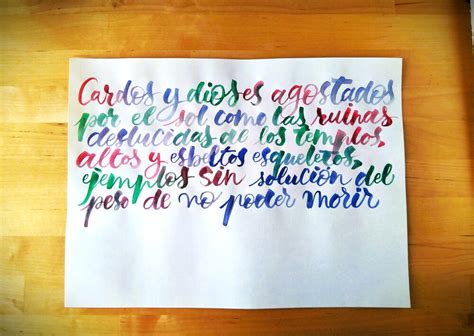 Cardos y dioses agostados
por el sol como las ruinas
deslucidas de los templos,
altos y esbeltos esqueletos,
ejemplos sin solución del
peso de no poder morir